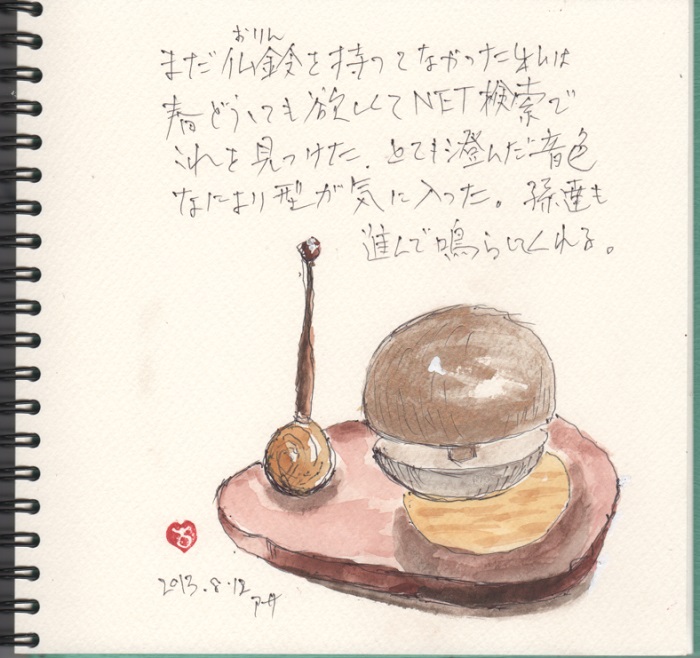 おりん
まだ仏鈴を持ってなかった私は
春どうしても欲しくてNET検索で
これを見つけた。とても澄んだ音色
なにより型が気に入った。孫達も
進んで鳴らしてくれる。
2013.8.12
アーサ